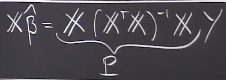 𝕏β̂ = 𝕏(𝕏ᵀ𝕏)⁻¹𝕏Y
P